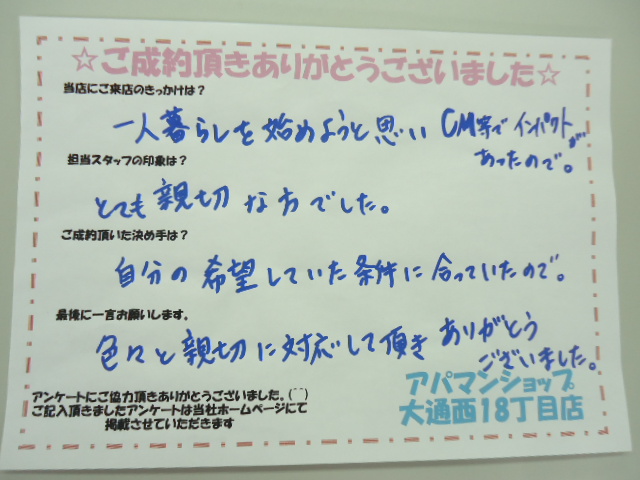 ☆ご成約頂きありがとうございました☆
当店にご来店のきっかけは？
一人暮らしを始めようと思い CM等で インパクトが
あったので。
担当スタッフの印象は？
とても親切な方でした。
ご成約頂いた決め手は？
自分の希望していた条件に合っていたので。
最後に一言お願いします。
色々と親切に対応して頂き ありがとう
ございました。
アンケートにご協力頂きありがとうございました。(⌒⌒)
ご記入頂きましたアンケートは当社ホームページにて
掲載させていただきます
アパマンショップ
大通西18丁目店